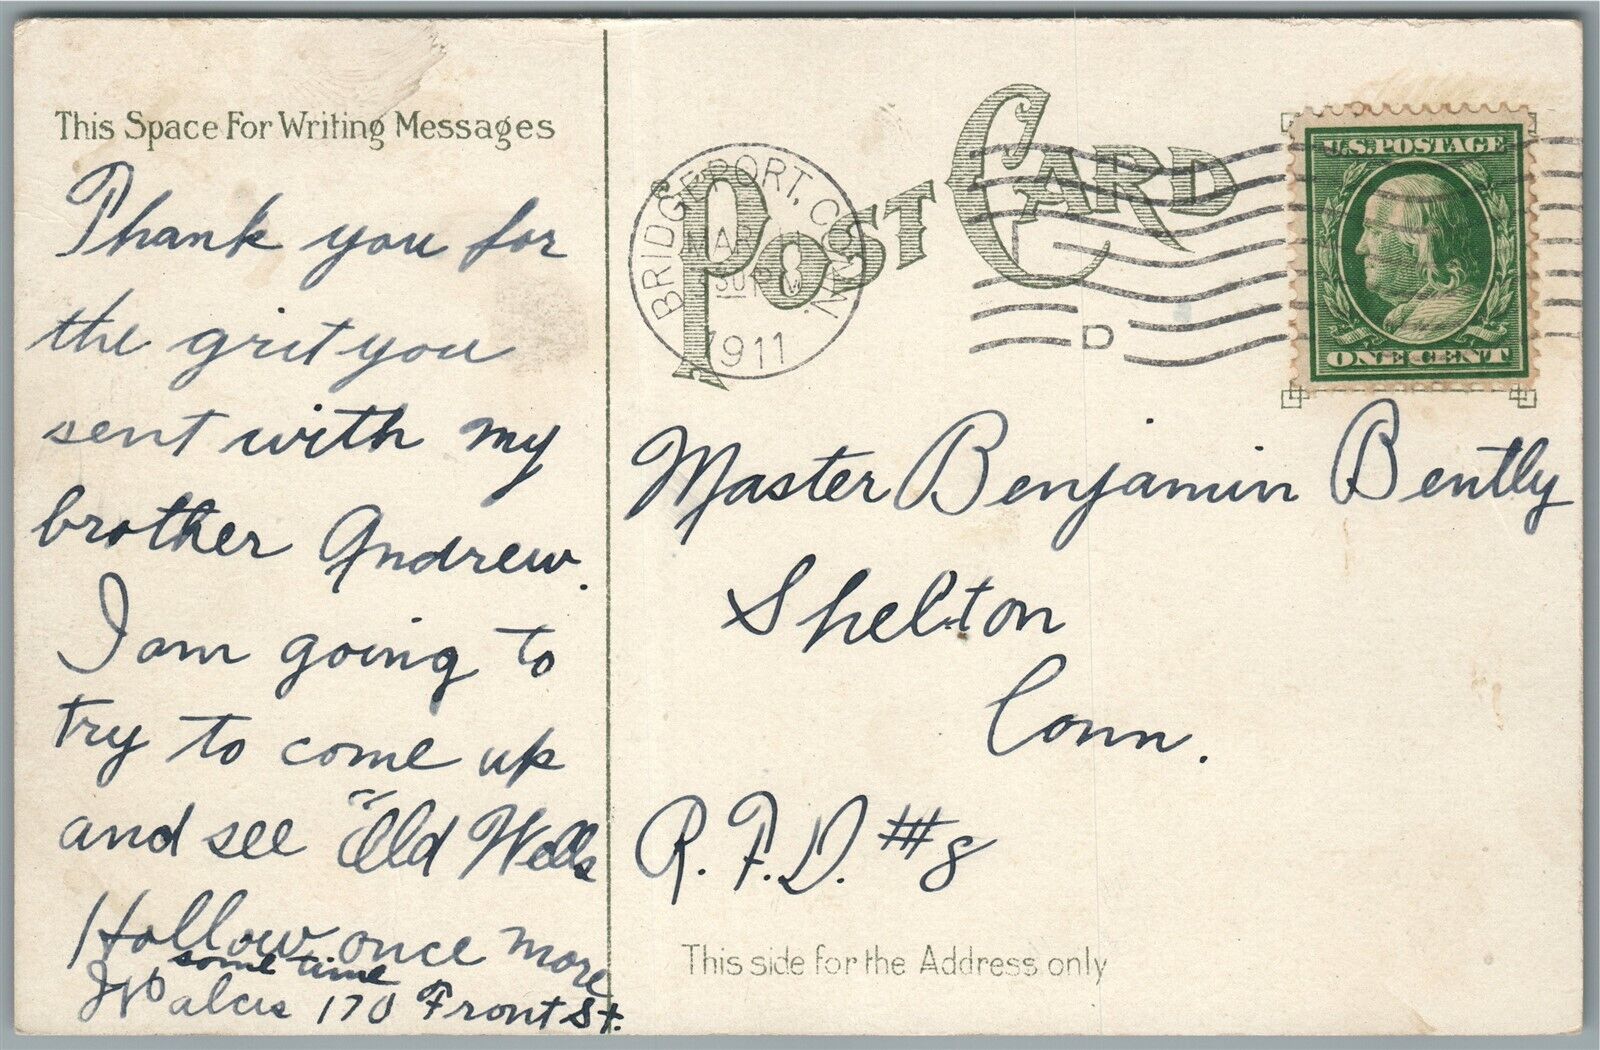 This Space For Writing Messages
Thank you for
the grit you
sent with my
brother Andrew.
I am going to
try to come up
and see "Old Wells
Hollow once more
some time
170 Front St.
POST CARD
BRIDGEPORT, CONN.
MAR
1911
D
U.S. POSTAGE
ONE CENT
Master Benjamin Bently
Shelton
Conn.
R. F. D. #8
This side for the Address only